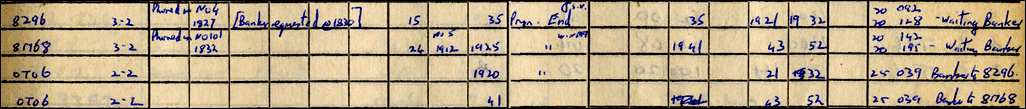 8296 3-2 Phoned in No 4 1827 [Banker requested @ 1830] 15 35 Prgn. End 35 1921 19 32 20 092 20 128 - Waiting Banker
8M68 3-2 Phoned in No 101 1832 24 1912 1925 " 1941 43 52 20 142 20 195 - Waiting Banker
0T06 2-2 1920 " 21 32 25 039 Banker to 8296.
0T06 2-2 41 43 52 25 039 Banker to 8M68